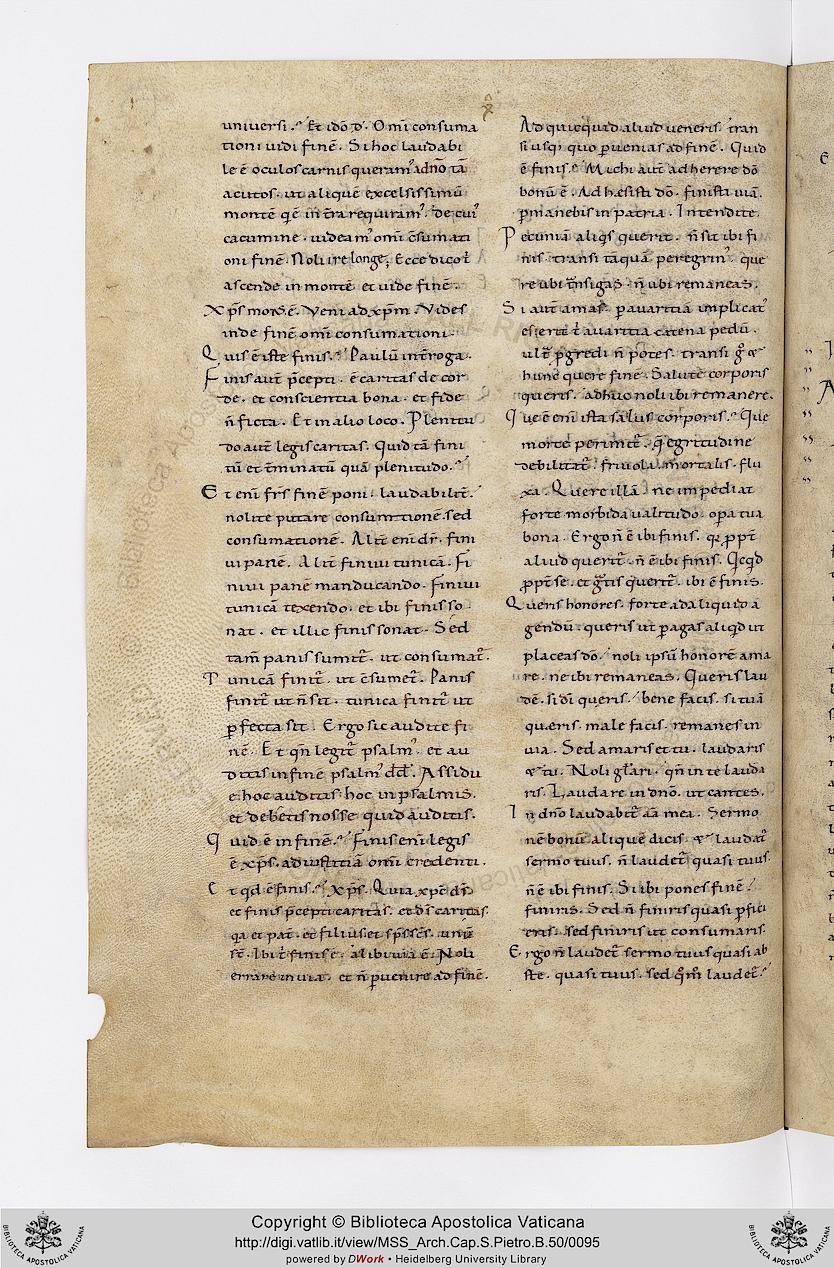 universi. Et idō d̄. Om̄i consuma
tioni vidi finē. Si hoc laudabi
le ē oculos carnis queram᾽ ad nō tā
acutos. ut aliquē excelsissimū
montē qͥ ē in t̄ra requiram᾽. de cui᾽
cacumine. videam᾽ om̄i c̄sumati
oni finē. Noli ire longe; Ecce dico t̄
ascende in montē et vide finē.
Xp̄s mons ē. Veni ad xp̄m. Vides
inde finē om̄i consumationi.
Quis ē iste finis? Paulū int̄roga.
Finis aut̄ p̄cepti. ē caritas de cor
de. et conscientia bona. et fide
n̄ ficta. Et in alio loco. Plenitu
do aut̄ legis caritas. Quid tā fini
tū et t̄minatū quā plenitudo?
Et eni᷑ fr̄s finē poni. laudabilit̄.
nolite putare consumtionē. sed
consumationē. Alit̄ eni᷑ dr̄. fini
vi panē. Alit̄ finivi tunicā. Fi
nivi panē manducando. finivi
tunicā texendo. et ibi finis so
nat. et illic finis sonat. Sed
tam̄ panis finit̄. ut consumat̄.
Tunicā finit̄. ut c̄sumet̄. Panis
finit̄ ut n̄ sit. tunica finit̄ ut
ꝑfecta sit. Ergo sic audite fi
nē. Et qn̄ legit̄ psalm᾽. et au
ditis in finē psalm᾽ dd̄. Assidu
e hoc auditis. hoc in psalmis.
et debetis nosse quid auditis.
Quid ē in finē? Finis eni᷑ legis
ē xp̄s. ad iustitiā om̄i credenti.
Et qd̄ ē finis? Xp̄s. Quia xp̄c ds̄
et finis p̄cepti caritas. et ds̄ caritas.
qa et pat̄. et filius. et sp̄s sc̄s. unū
st̄. Ibi t̄ finis ē. alibi via ē. Noli
errare in via. et n̄ pvenire ad finē.
Ad quicquid aliud veneris. tran
si usq; quo pvenias ad finē. Quid
ē finis? Michi aut̄ adherere dō
bonū ē. Adhesisti dō. finisti viā.
pmanebis in patria. Intendite.
Pecuniā aliqͥs querit. n̄ sit ibi fi
nis. transi tāquā peregrin᾽. que
re ubi tn̄sigas. n̄ ubi remaneas.
Si aut̄ amas. p avaritiā implicat᾽
es. erit t̄ avaritia catena pedū.
ult̄ pgredi n̄ potes. transi g̊ et
hunc quere finē. Salutē corporis
queris. adhuc noli ibi remanere.
Que ē eni᷑ ista salus corporis? Que
morte perimit̄. q̄ egritudine
debilitat̄. frivola. mortalis. flu
xa. Quere illā. ne impediat
forte morbida valitudo. oꝑa tua
bona. Ergo n̄ ē ibi finis. qͥ pp̄t
aliud querit̄. n̄ ē ibi finis. Qͥcqͥd
pp̄t se. et gͣtis querit̄. ibi ē finis.
Queris honores. forte ad aliquid a
gendū. queris ut pagas aliqͥd ut
placeas dō. noli ipsū honorē ama
re. ne ibi remaneas. Queris lau
dē. si di queris. bene facis. si tuā
queris. male facis. remanes in
via. Sed amaris et tu. laudaris
et tu. Noli gl̄ari. qn̄ in te lauda
ris. Laudare in dn̄o. ut cantes.
In dn̄o laudabit̄ aīa mea. Sermo
nē bonū aliquē dicis. et laudat̄
sermo tuus. n̄ laudet̄ quasi tuus.
n̄ ē ibi finis. Si ibi pones finē.
finiris. Sed n̄ finiris quasi pfici
eris. sed finiris ut consumaris.
Ergo n̄ laudet̄ sermo tuus quasi ab
ste. quasi tuus. sed qͦm̄ laudet̄?
Copyright © Biblioteca Apostolica Vaticana
http://digi.vatlib.it/view/MSS_Arch.Cap.S.Pietro.B.50/0095
powered by DWork • Heidelberg University Library